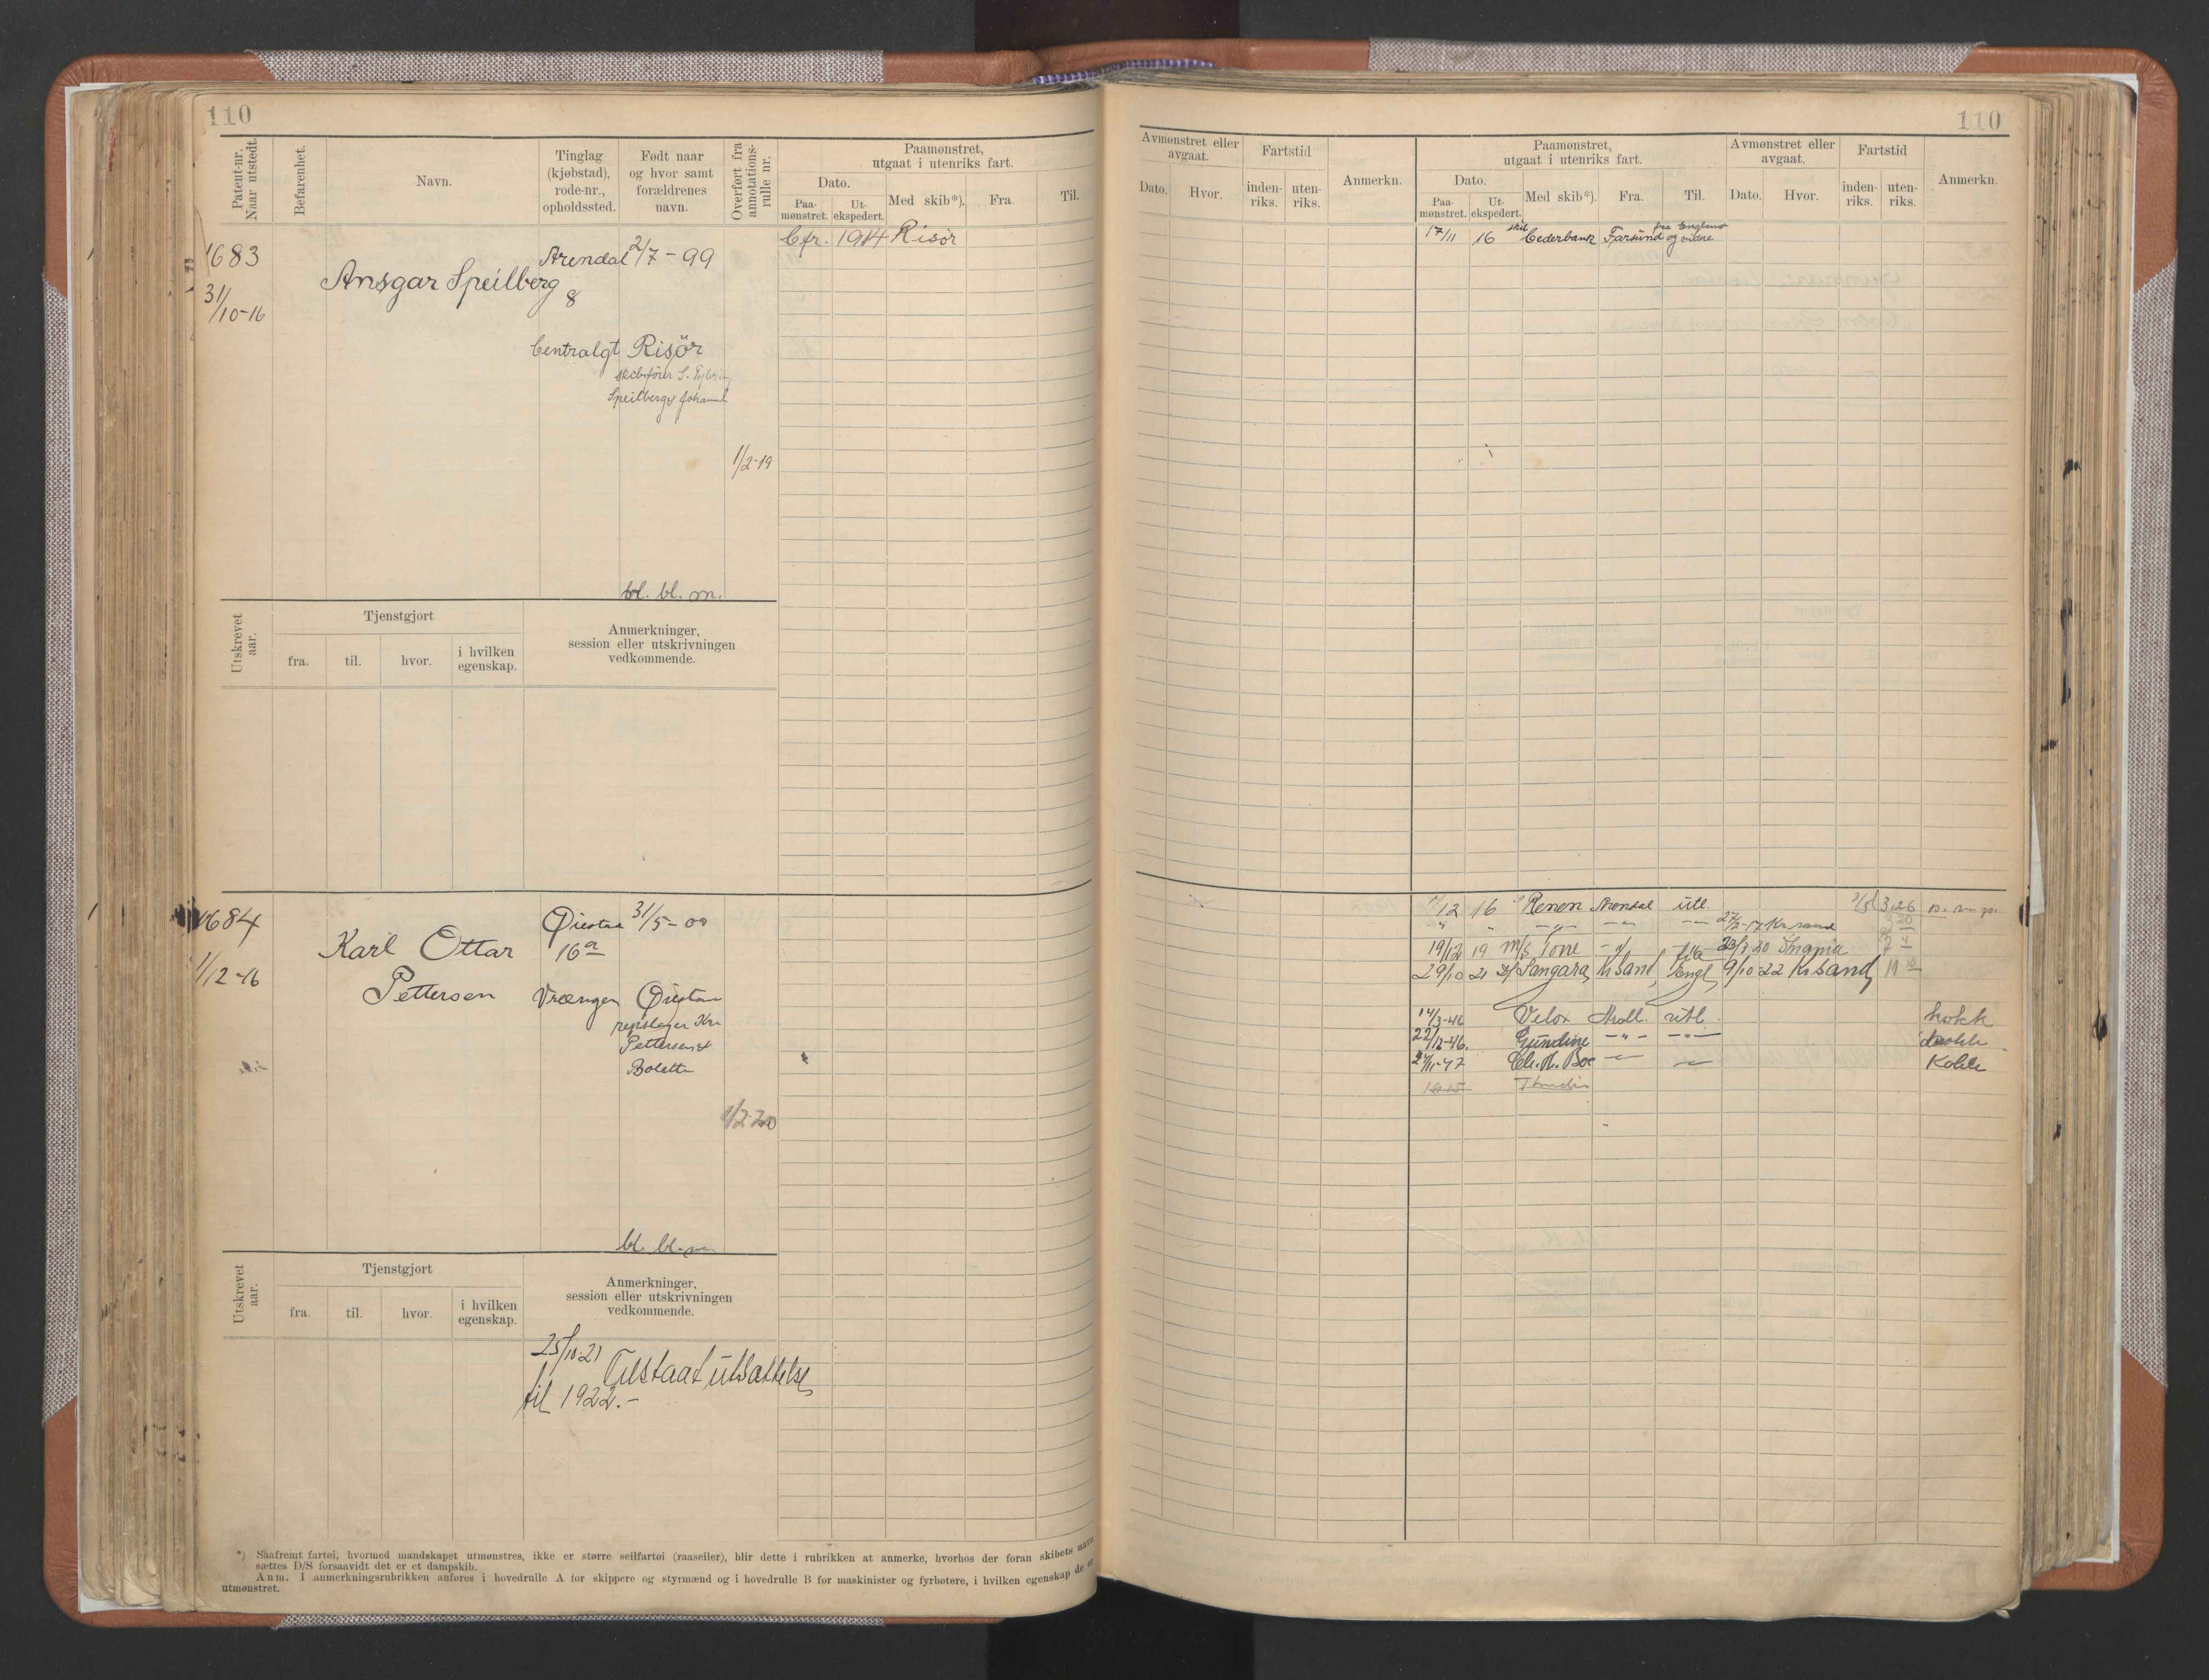 110
Patent-nr. Naar utstedt.
Befarenhet.
Navn.
Tinglag (kjøbstad), rode-nr., opholdssted.
Født naar og hvor samt forældrenes navn.
Overført fra annotations-rulle nr.
Paamønstret, utgaat i utenriks fart.
Dato.
Paa-mønstret.
Ut-ekspedert.
Med skib*).
Fra.
Til.
1683
31/10-16
Ansgar Speilberg
Arendal
8
2/7-99
Cfr. 1914 Risör
Centralgt Risör
Speilberg
1/2-19
bl. bl. m.
Utskrevet aar.
Tjenstgjort
fra.
til.
hvor.
i hvilken egenskap.
Anmerkninger, session eller utskrivningen vedkommende.
1684
1/12-16
Karl Ottar
Pettersen
Øiestad 31/5-00
16a
Vrængen
repslager Kr.
Pettersen &
Bolette
1/2-20
bl. bl. m
Utskrevet aar.
Tjenstgjort
fra.
til.
hvor.
i hvilken egenskap.
Anmerkninger, session eller utskrivningen vedkommende.
25/10-21 Tilstaat utsættelse
til 1922.-
*) Saafremt fartøi, hvormed mandskapet utmønstres, ikke er større seilfartøi (raaseiler), blir dette i rubrikken at anmerke, hvorhos der foran skibets navn
sættes D/S forsaavidt det er et dampskib.
Anm. I anmerkningsrubrikken anføres i hovedrulle A for skippere og styrmænd og i hovedrulle B for maskinister og fyrbøtere, i hvilken egenskap de er
utmønstret.
110
Avmønstret eller avgaat.
Dato.
Hvor.
Fartstid
inden-riks.
uten-riks.
Anmerkn.
Paamønstret, utgaat i utenriks fart.
Dato.
Paa-mønstret.
Ut-ekspedert.
Med skib*).
Fra.
Til.
Avmønstret eller avgaat.
Dato.
Hvor.
Fartstid
inden-riks.
uten-riks.
Anmerkn.
17/11 16 skib Cederbank Farsund fra England og videre
1/12 16 Renen Arendal utl.
27/2-17 Kr.sand
19/12 19 m/s Tone 23/3 20
29/10 21 D/S Sangara Krsand Engl 9/10-22 Krsand
14/3-46 Velox Moll. utl. kokk
22/12-46. Gundine
Ch. R. Boe